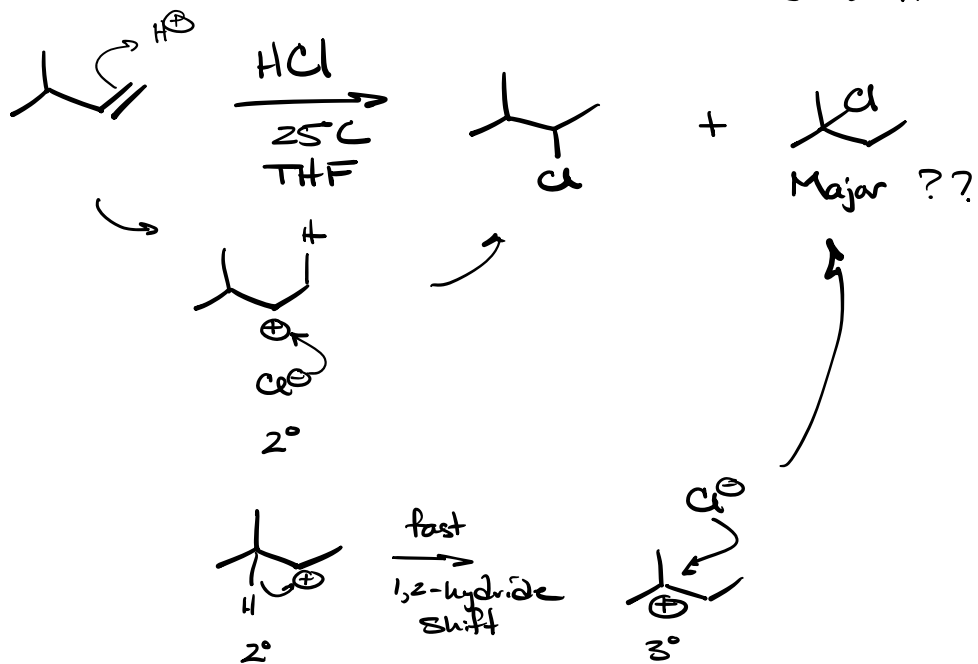 H⊕
HCl
25°C
THF
Cl
+
Cl
Major ??
H
⊕
Cl⊖
2°
H
⊕
2°
fast
1,2-hydride
shift
Cl⊖
⊕
3°